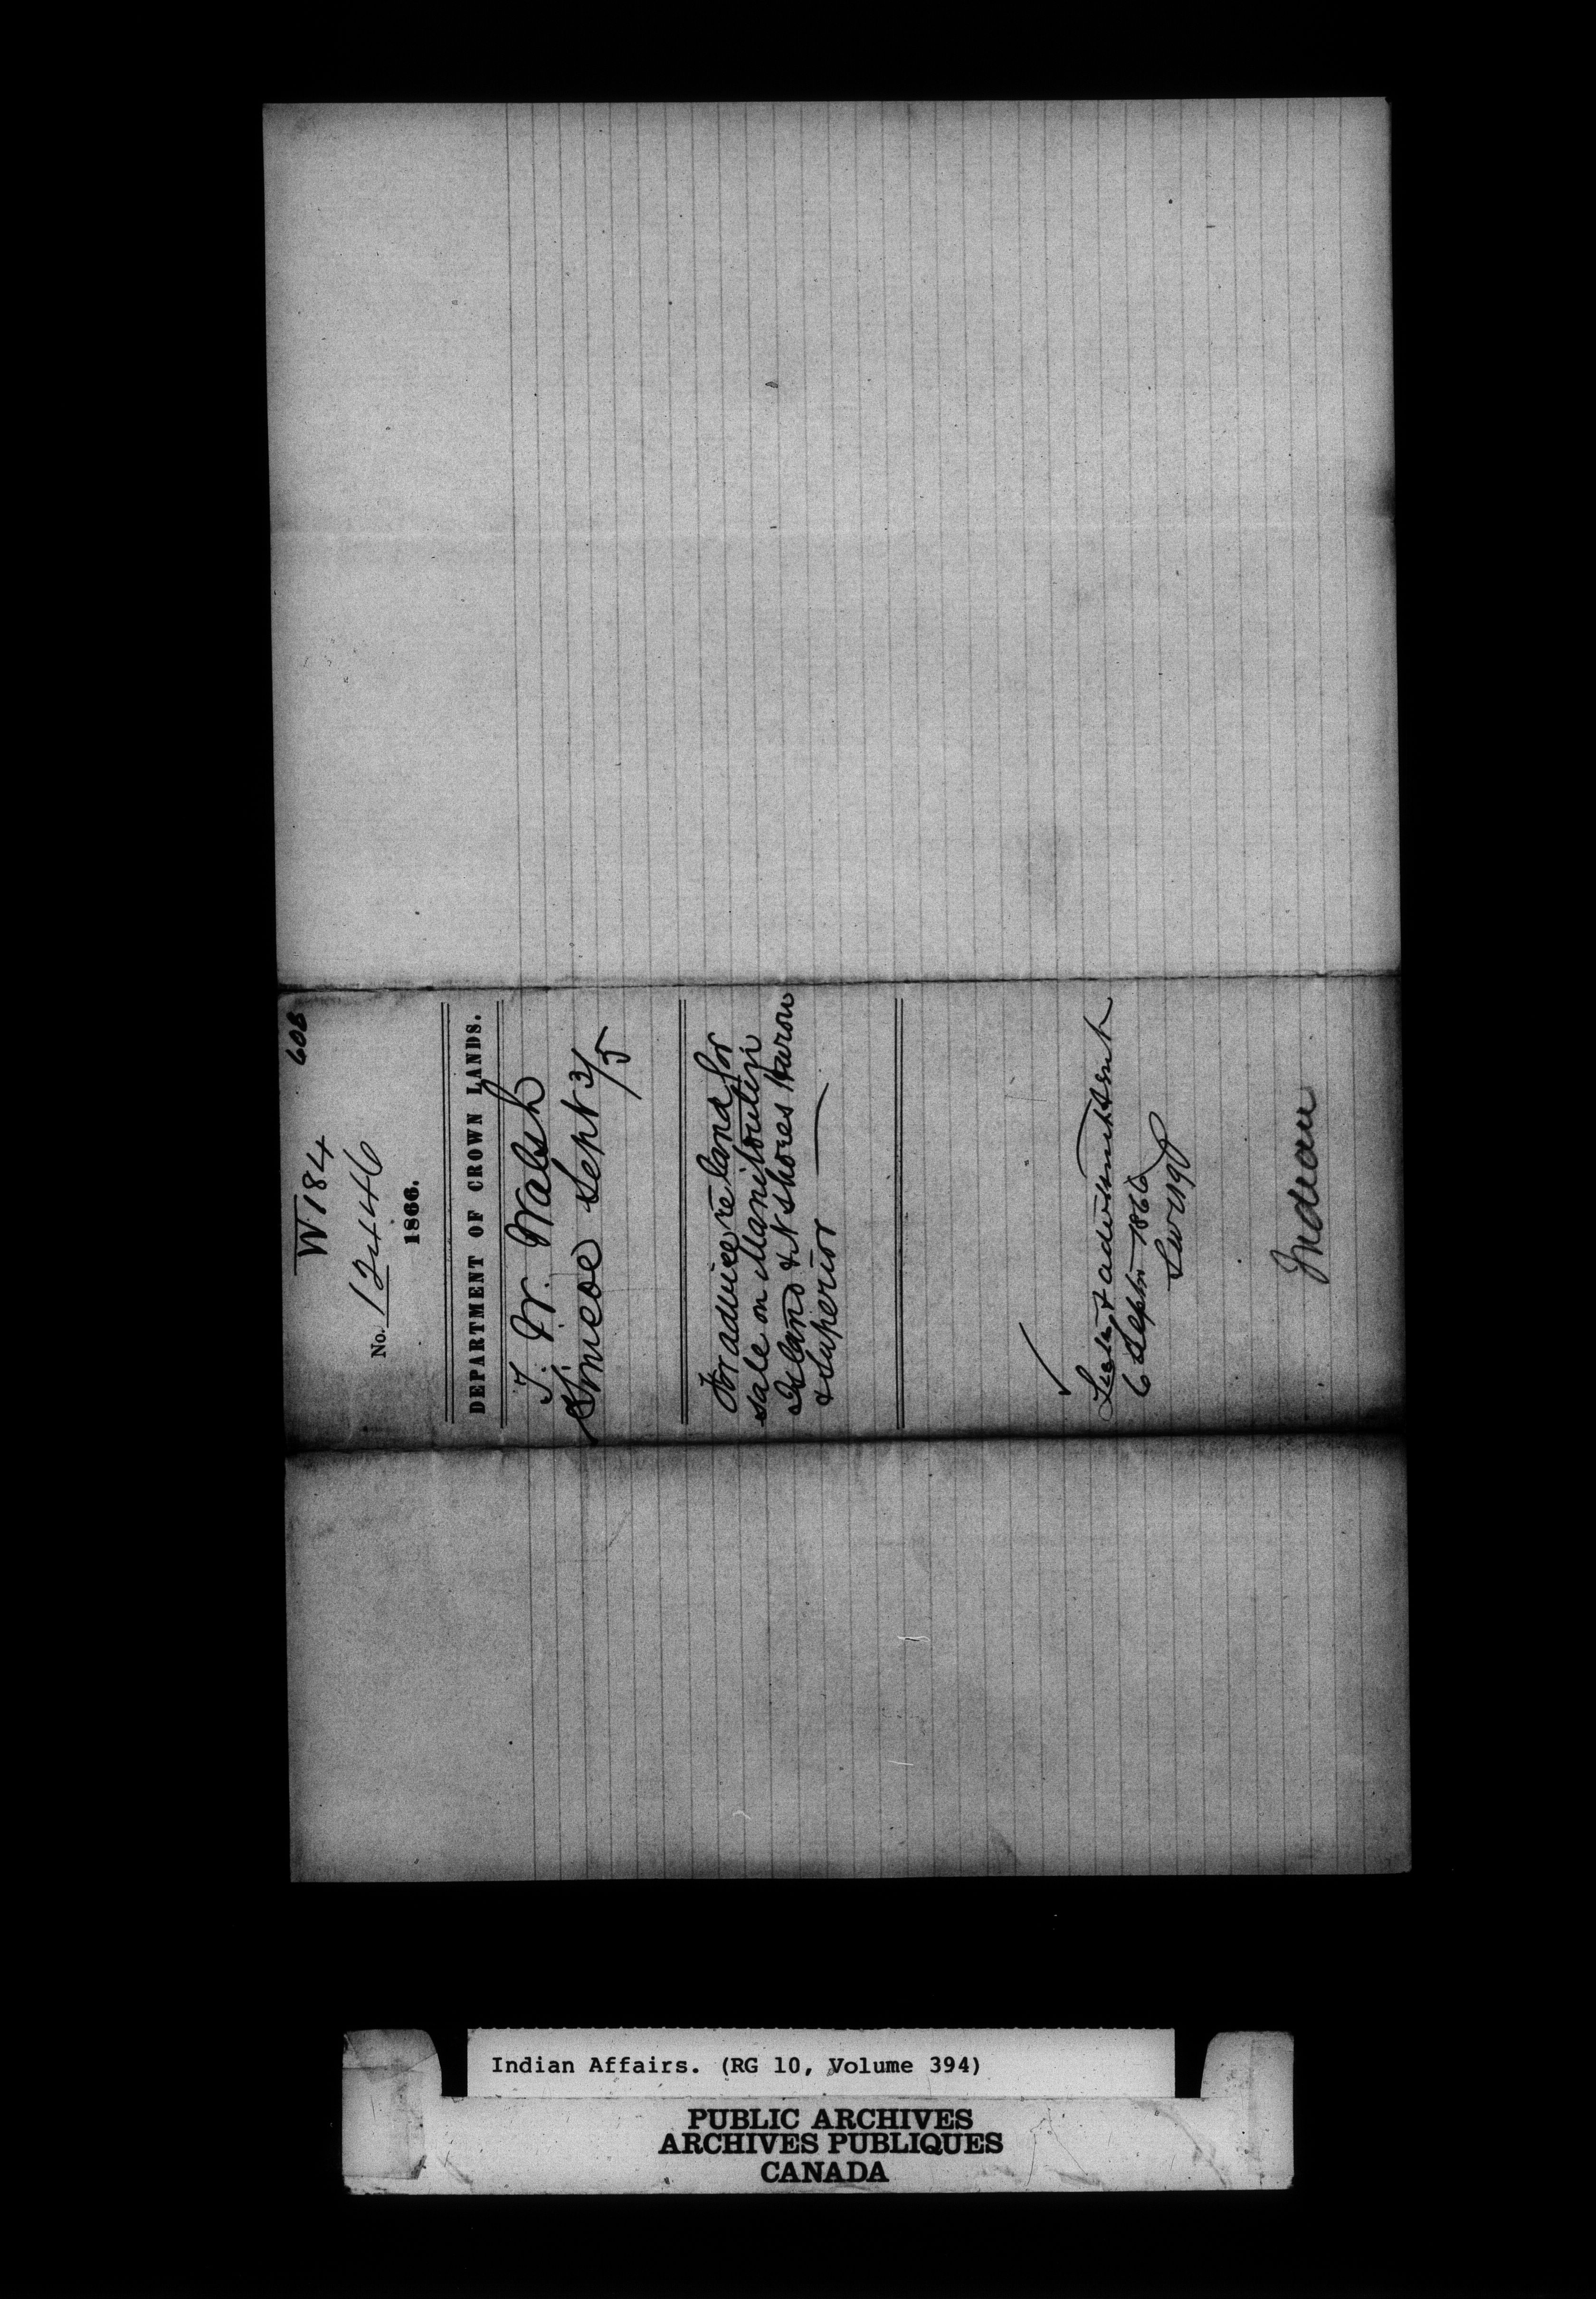 608
W184
No. 12446
1866.
DEPARTMENT OF CROWN LANDS.
T. W. Walsh
Simcoe Sept 3/5
For advice re land for
sale on Manitoulin
Island & N Shores Huron
& Superior
& advismt sent
6 Septr 1866
Indian
Indian Affairs. (RG 10, Volume 394)
PUBLIC ARCHIVES
ARCHIVES PUBLIQUES
CANADA